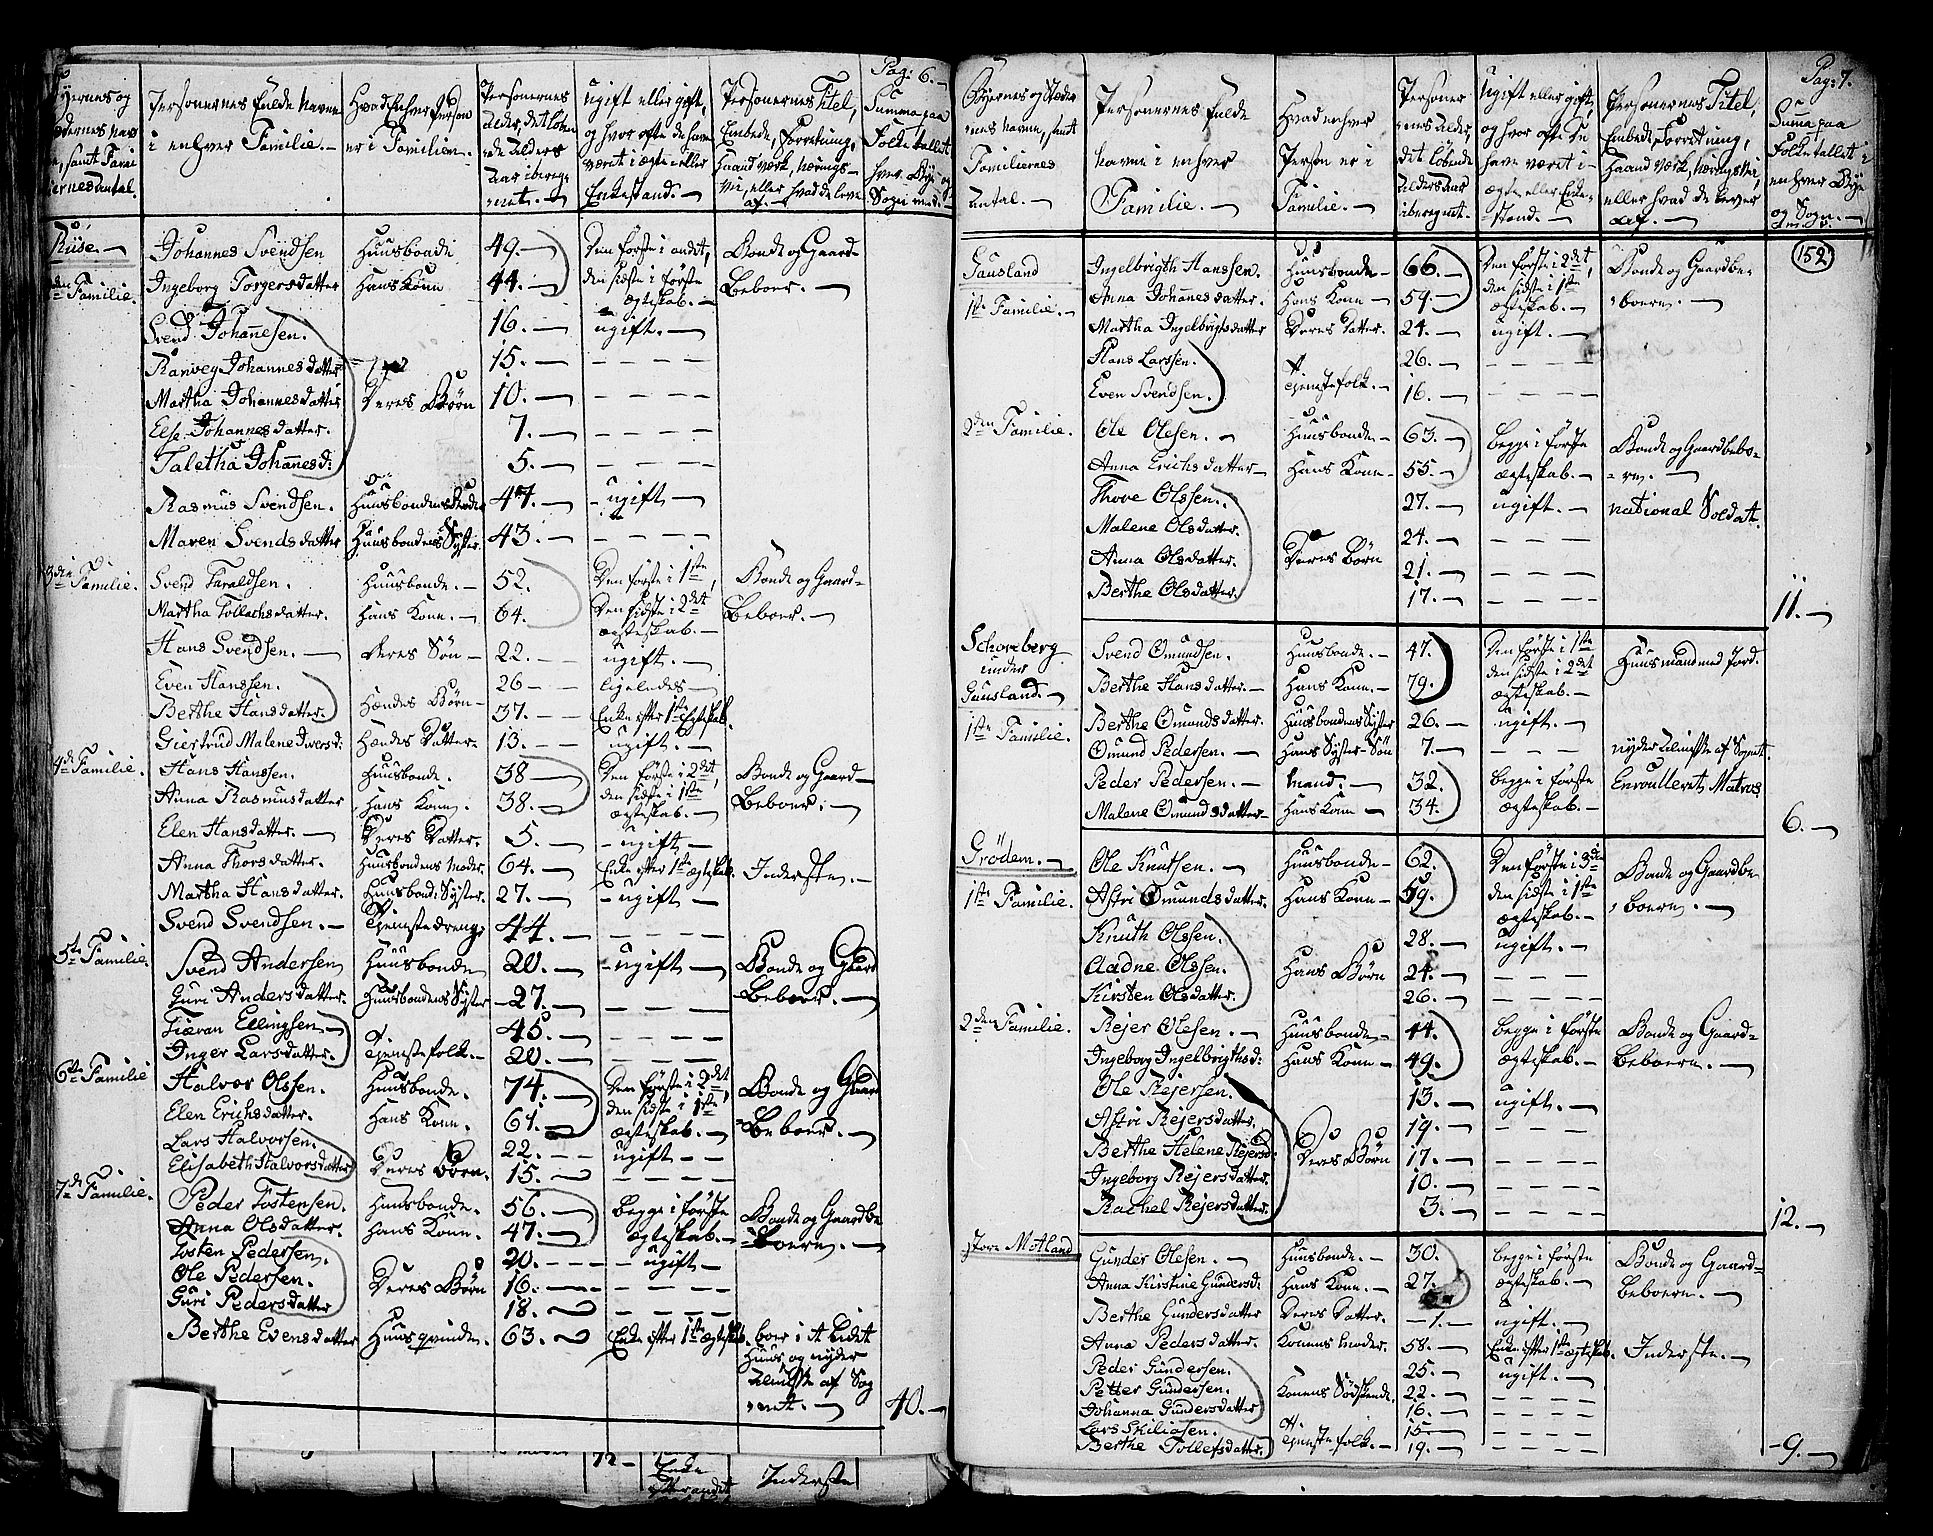 Pag: 6.
Personernes fulde Navne i enhver Familie.
Hvad Enhver Person er i Familien.
Personernes Alder, det løbende Alders Aar iberegnet.
Ugift eller gift, og hvor ofte de have været i ægte eller Enkestand.
Personernes Titel, Embede, Forretning, Haandværk, Nærings-
Summa paa Folketallet
Riise.
Johannes Svendsen 49. Den første i andet, Bonde og Gaard-
Ingeborg Torgersdatter Hans Konn 44. den sidste i første Ægteskab. Beboer.
Svend Johannesen. 16. ugift.
Ranveg Johannesdatter 15.
Martha Johannesdatter Deres Børn 10.
Else Johannesdatter. 7.
Taletha Johannesd: 5.
Rasmus Svendsen. 47. ugift
Maren Svendsdatter Huusbondens Syster. 43.
Familie. Svend Taraldsen. Huusbonde. 52. Den første i 1ste, Bonde og Gaard-
Martha Tollachsdatter. Hans Konn. 64. Den sidste i 2det ægteskab. Beboer.
Hans Svendsen. Deres Søn 22. ugift.
Even Hanssen. 26 ligeledes
Berthe Hansdatter. Hendes Børn 37. Enke efter 1ste Egteskab.
Giertrud Malene Iversd: Hendes Datter 13. ugift.
4de Familie. Hans Hanssen. Huusbonde. 38 Den første i 2det, Bonde og Gaard-
Anna Rasmusdatter Hans Konn. 38. den sidste i 1ste ægteskab. Beboer.
Elen Hansdatter. Deres Datter. 5. ugift.
Anna Thorsdatter. Huusbondens Moder. 64. Enke efter 1ste ægteskab. Inderste.
Martha Hansdatter. Huusbond: Syster. 27. ugift
Svend Svendsen. Tjenestedreng. 44.
5te Familie. Svend Andersen Huusbonde 20. ugift Bonde og Gaard
Guri Andersdatter. Huusbondens Syster 27. Beboer.
Ellingsen 45.
Inger Larsdatter. Tjenestefolk. 20.
6te Familie Halvor Olssen. Huusbonde. 74. Den første i 2det, Bonde og Gaard
Elen Erichsdatter. Hans Konn. 61. den sidste i 1ste ægteskab. Beboer.
Lars Halvorsen. 22. ugift
Elisabeth Halvorsdatter Deres Børn. 15.
7de Familie. Peder Tostensen. Huusbonde. 56. begge i første Bonde og Gaardbe
Anna Olsdatter. Hans Konn. 47. Egteskab. boern.
Tosten Pedersen. 20. ugift
Ole Pedersen. Deres Børn 16.
Guri Pedersdatter 18.
Berthe Evensdatter Huusqvinden. 63. Enke efter 1ste ægteskab. boer i et lidet
Huus og nyder
Almisse af Sog
net.
40.
72
Enke
Inderste
Pag: 7.
Byernes og Stædernes Navne, samt Familiernes Antal.
Personernes fulde Navne i enhver Familie.
Hvad enhver Person er i Familie.
Personernes Alder, det løbende Alders Aar iberegnet.
Ugift eller gift, og hvor ofte de have været i ægte eller Enkestand.
Personernes Titel, Embede, Forretning, Haandværk, Næringsvei, eller hvad de lever af.
Summa paa Folketallet i enhver Bye og Sogn.
152
Gausland Ingelbrigth Hanssen. Huusbonde 66. Den første i 2det, Bonde og Gaardbe-
1ste Familie. Anna Johannesdatter. Hans Konn 59. den sidste i 1ste ægteskab. boern.
Martha Ingelbrigtsdatter Deres Datter. 24. ugift.
Hans Larssen. 26.
Even Svendsen. Tjenestefolk. 16.
2den Familie. Ole Olesen. Huusbonde 63. begge i første Bonde og Gaardbebo-
Anna Erichsdatter Hans Konn 55. ægteskab. ern.
Thore Olssen. 27. ugift. national Soldat.
Malene Olsdatter. 24.
Anna Olsdatter. Deres Børn 21.
Berthe Olsdatter. 17.
11.
Schoreberg under Gausland. Svend Omundsen. Huusbonde. 47. Den første i 1ste Huusmand med Jord.
Berthe Hansdatter. Hans Konn. 79. den sidste i 2det ægteskab.
1ste Familie. Berthe Omundsdatter. Huusbondens Syster 26. ugift.
Omund Pedersen. Hans Syster Søn 7. nyder Almisse af Sognet.
Peder Pedersen. Mand. 32. begge i første Enroulleret Matros
Malene Omundsdatter Hans Konn 34. ægteskab.
6.
Grödem. Ole Knutsen. Huusbonde 62. Den første i 3die Bonde og Gaardbe
1ste Familie. Astri Omundsdatter. Hans Konn 59. den sidste i 1ste ægteskab. boern.
Knuth Olssen. 28. ugift.
Aadne Olssen. Hans Børn 24.
Kirsten Olsdatter. 26.
2den Familie. Rejer Olesen. Huusbonde 44. begge i første Bonde og Gaard-
Ingeborg Ingelbrigthsd: Hans Konn 49. ægteskab. Beboern.
Ole Rejersen. 13. ugift.
Astri Rejersdatter. 19.
Berthe Helene Rejersd: Deres Børn 17.
Ingeborg Rejersdatter. 10.
Rachel Rejersdatter. 3.
12.
store Motland Gunder Olesen. Huusbonde. 30. begge i første Bonde og Gaard-
Anna Kirstine Gundersd: Hans Konn. 27. ægteskab. beboern.
Berthe Gundersdatter Deres Datter. 1. ugift.
Anna Pedersdatter. Konens Moder. 58. Enke efter 1ste ægteskab. Inderste.
Peder Gundersen. 25. ugift.
Petter Gundersen. Konens Sødskende. 22.
Johanna Gundersdatter 16.
Lars Skiliasen. 15
Berthe Tollefsdatter. Tjenestefolk. 19.
9.